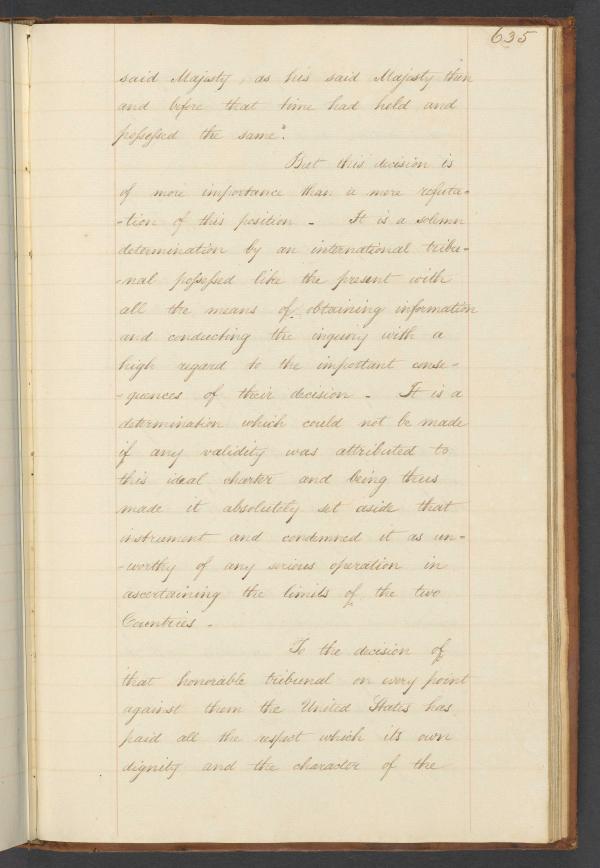 635
said Majesty, as his said Majesty then
and before that time had held and
possessed the same".
But this decision is
of more importance than a mere refuta-
-tion of this position - It is a solemn
determination by an international tribu-
-nal possessed like the present with
all the means of obtaining information
and conducting the inquiry with a
high regard to the important conse-
-quences of their decision - It is a
determination which could not be made
if any validity was attributed to
this ideal charter and being thus
made it absolutely set aside that
instrument and condemned it as un-
-worthy of any serious operation in
ascertaining the limits of the two
Countries -
To the decision of
that honorable tribunal on every point
against them the United States has
paid all the respect which its own
dignity and the character of the